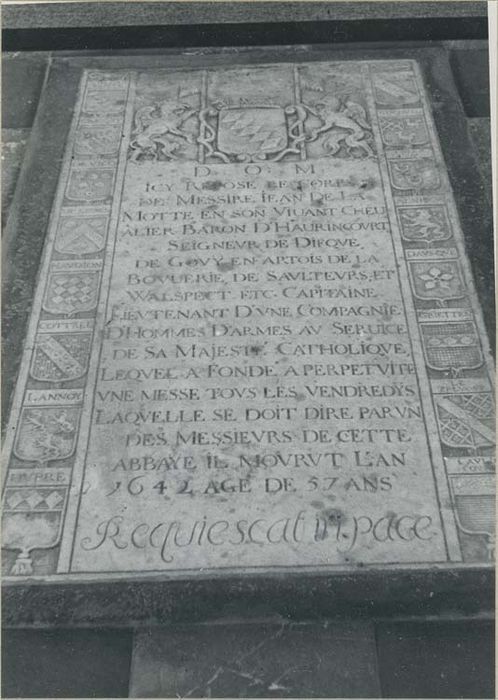 D · O · M
ICY REPOSE LE CORPS
DE MESSIRE IEAN DE LA
MOTTE EN SON VIUANT CHEU
ALIER BARON D'HAURINCOURT
SEIGNEUR DE DIFQUE
DE GOUY EN ARTOIS DE LA
BOUUERIE, DE SAULTEURS, ET
WALSPECT ETC. CAPITAINE
LIEUTENANT D'UNE COMPAGNIE
D'HOMMES D'ARMES AU SERUICE
DE SA MAJESTÉ CATHOLIQUE
LEQUEL A FONDE A PERPETUITE
UNE MESSE TOUS LES VENDREDYS
LAQUELLE SE DOIT DIRE PAR UN
DES MESSIEURS DE CETTE
ABBAYE IL MOURUT L'AN
1642 AGE DE 57 ANS
Requiescat in pace
COTTREL
LANNOY